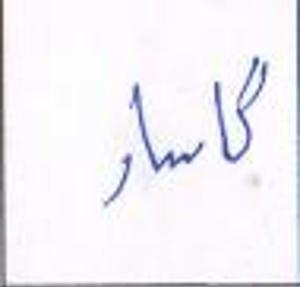 گاسار